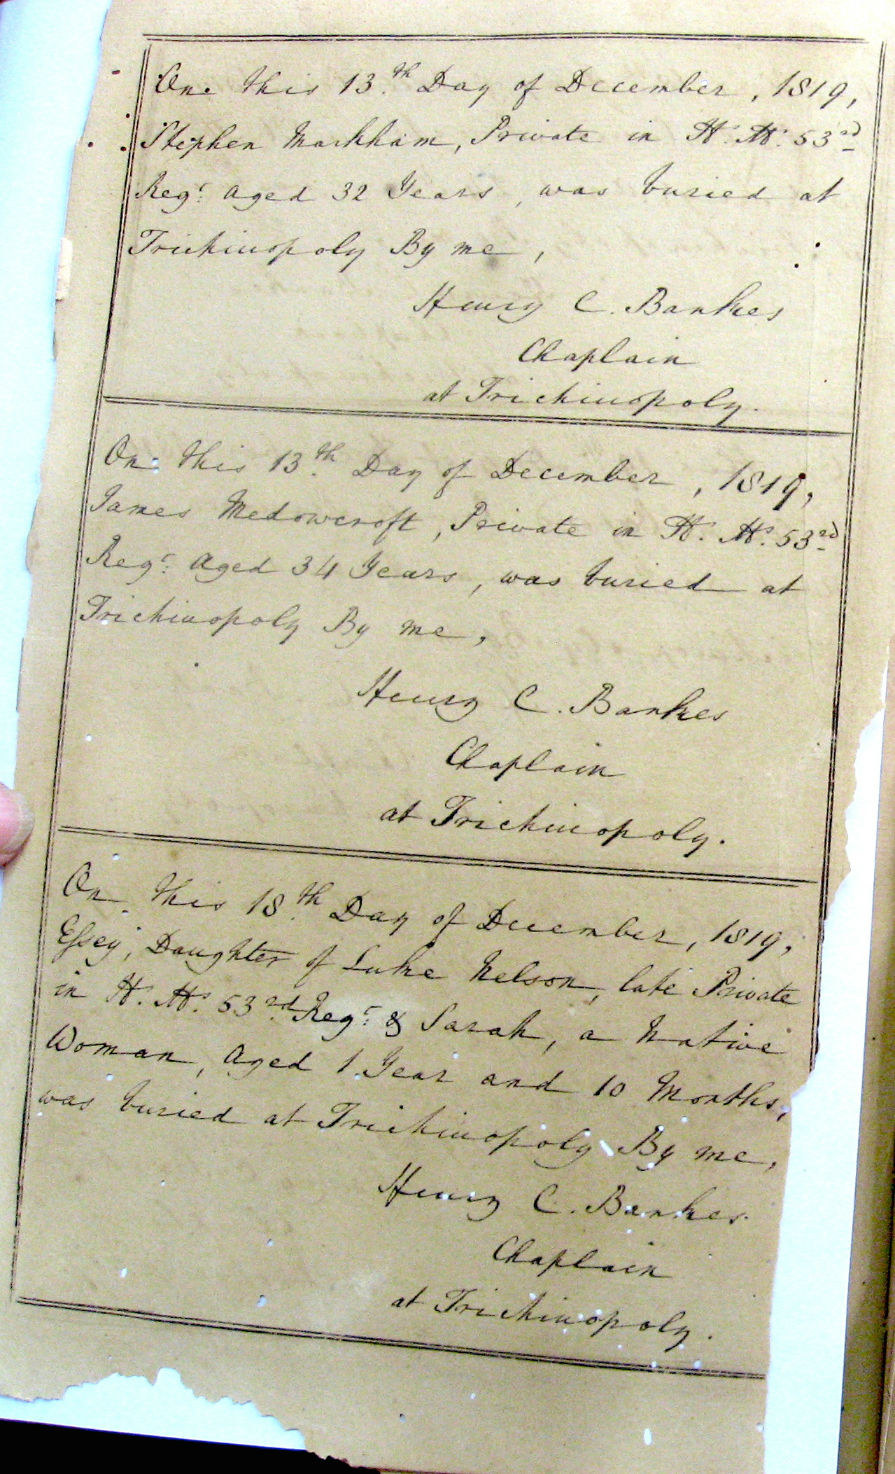 On this 13.th Day of December, 1819,
Stephen Markham, Private in H. M. 53rd
Regt. aged 32 Years, was buried at
Trichinopoly By me,
Henry C. Bankes
Chaplain
at Trichinopoly.
On this 13.th Day of December, 1819,
James Medowcroft, Private in H. M. 53rd
Regt. aged 34 Years, was buried at
Trichinopoly By me,
Henry C. Bankes
Chaplain
at Trichinopoly.
On this 18.th Day of December, 1819,
Essey, Daughter of Luke Nelson, late Private
in H. M. 53rd Regt. & Sarah, a Native
Woman, aged 1 Year and 10 Months,
was buried at Trichinopoly By me,
Henry C. Bankes.
Chaplain
at Trichinopoly.